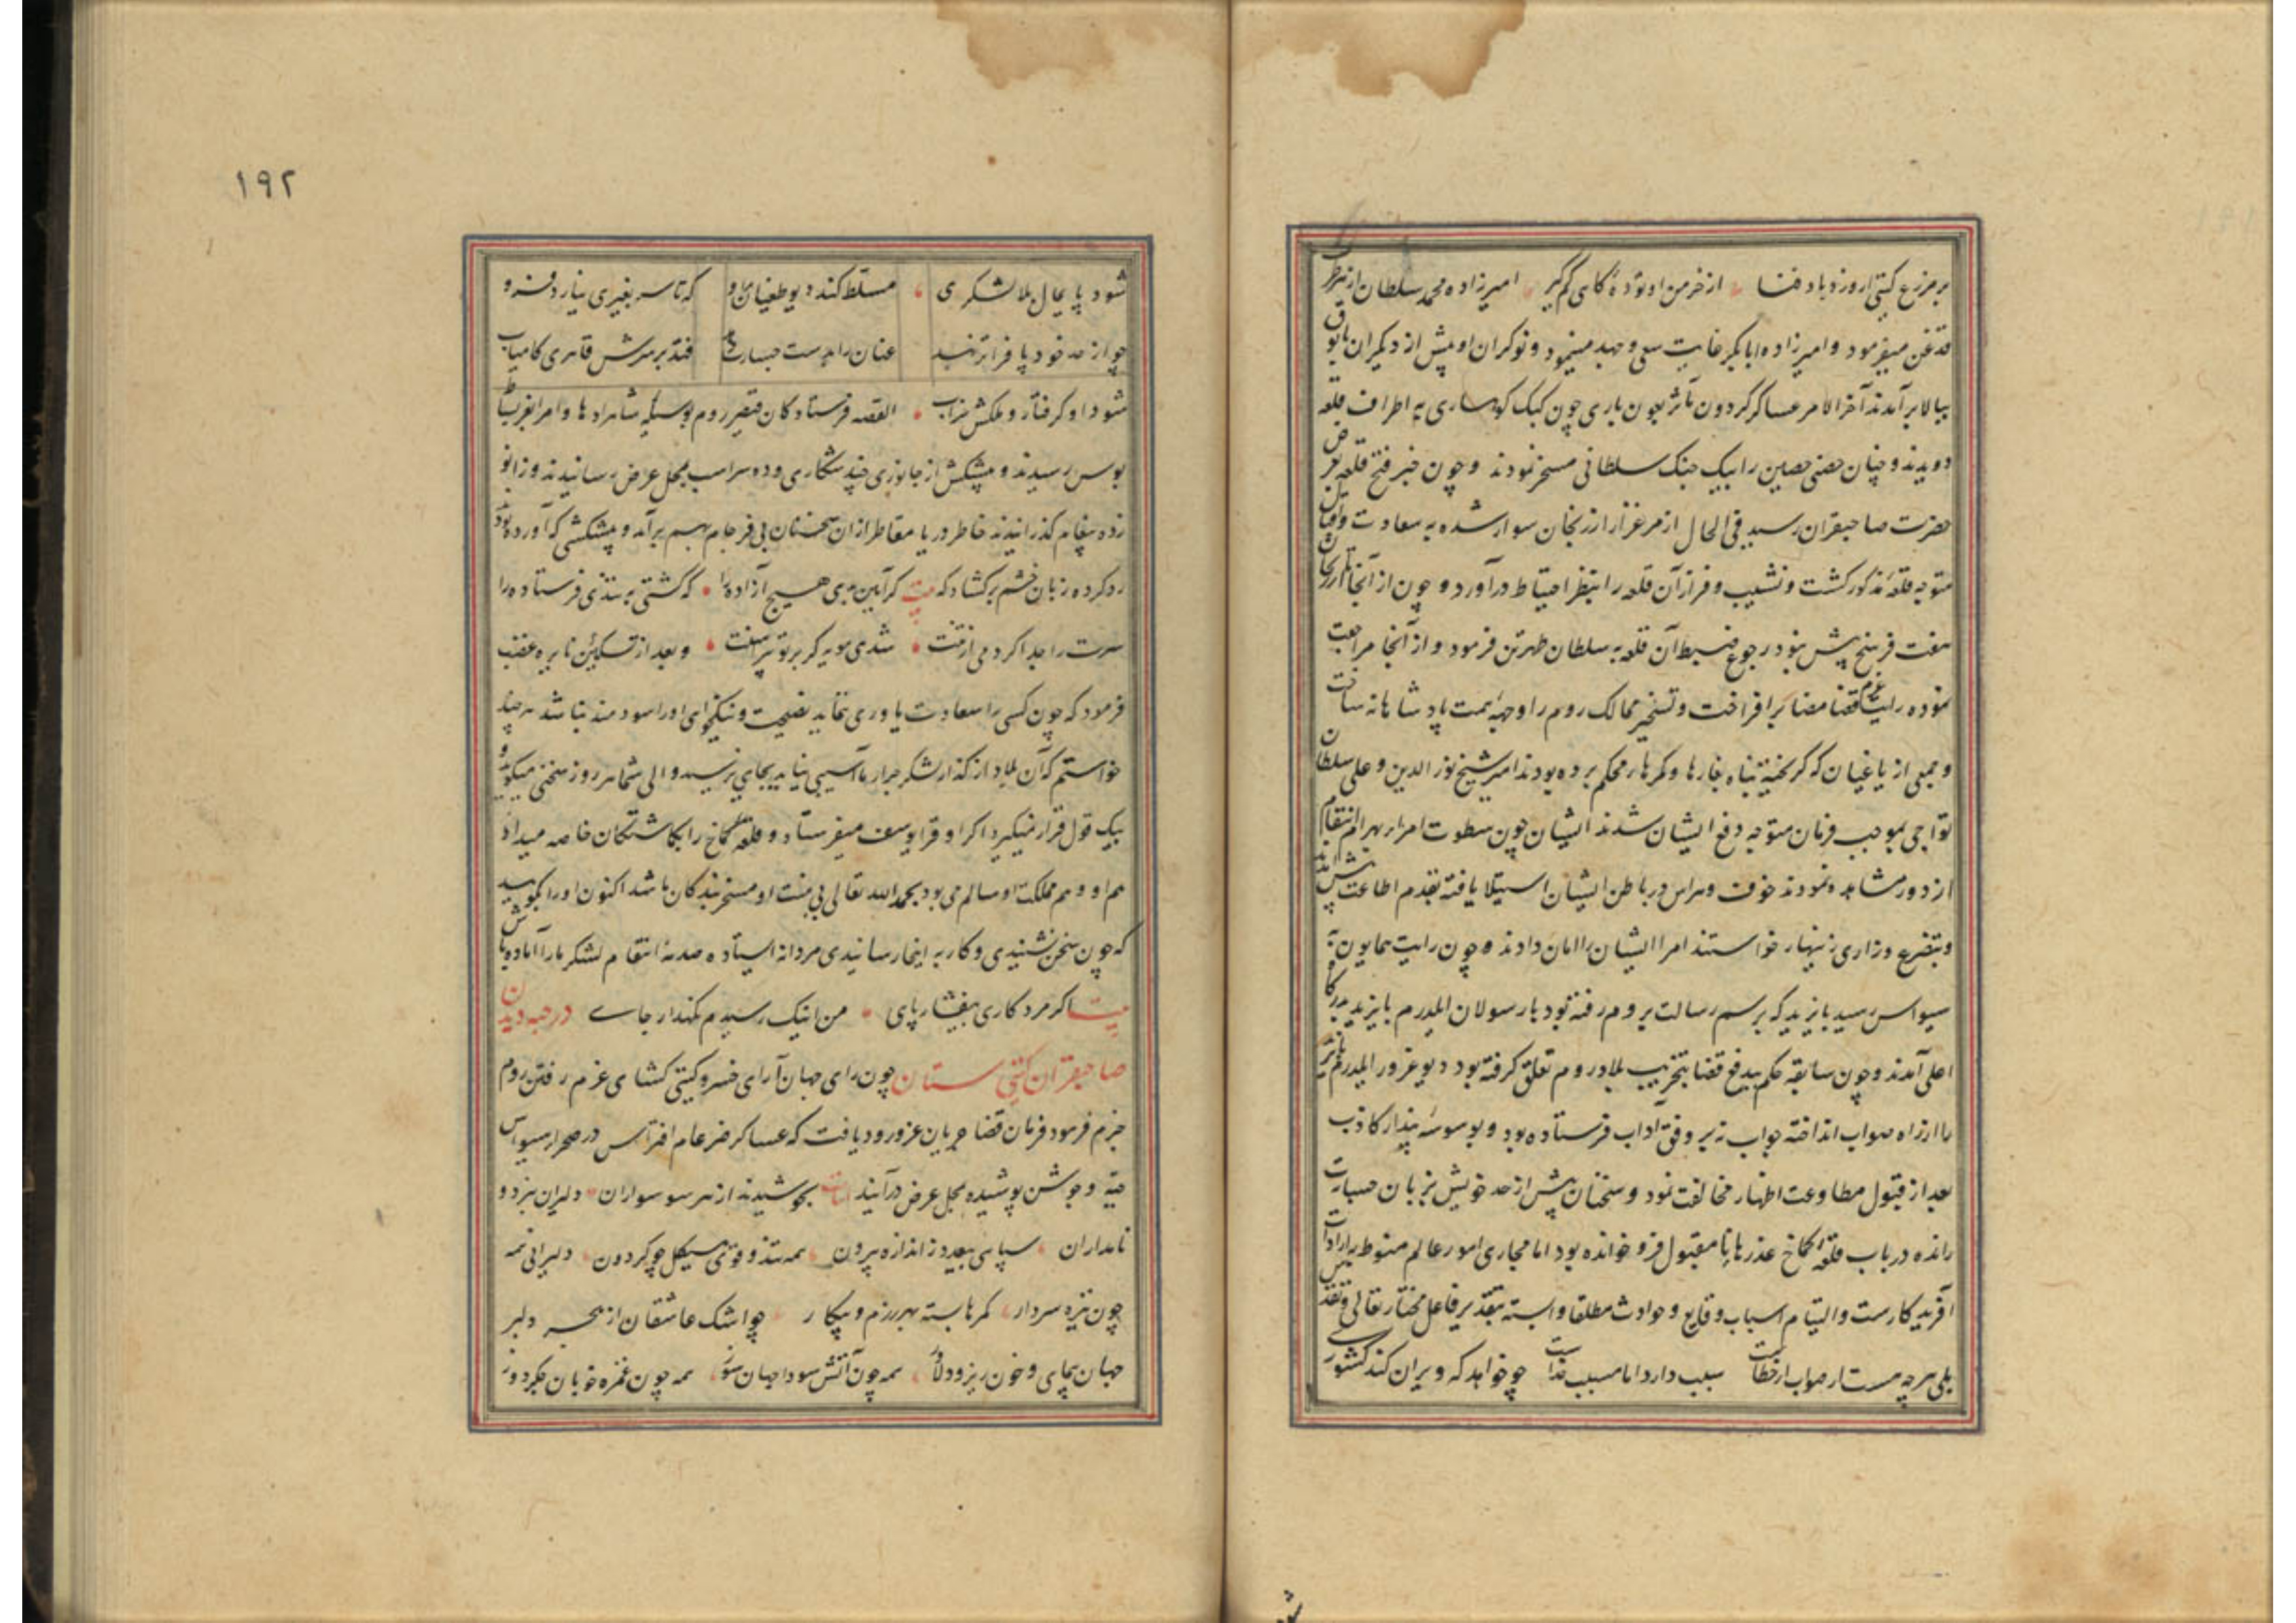 بر مزرع کیتی ار وزد باد فنا از خرمن او توده کاهی کم کیر امیرزاده محمد سلطان از هر طرف
قدغن میفرمود و امیرزاده ابابکر غایت سعی و جهد مینمود و نوکران او پیش از دیکران
ببالا برآمدند آخر الامر عساکر کردون مآثر بعون باری چون کبک کوهساری به اطراف قلعه
دویدند و چنان حصنی حصین را بیک جنک سلطانی مسخر نمودند و چون خبر فتح قلعه بعرض
حضرت صاحبقران رسید فی الحال از مرغزار ارزنجان سوار شده به سعادت و اقبال
متوجه قلعه مذکور کشت و نشیب و فراز آن قلعه را بنظر احتیاط درآورد و چون از آنجا تا ارزنجان
هفت فرسخ بیش نبود رجوع ضبط آن قلعه به سلطان طهرتن فرمود و از آنجا مراجعت
نموده رایت عزم قضا مضا برافراخت و تسخیر ممالک روم را وجهه همت پادشاهانه ساخت
و جمعی از یاغیان که کریخته پناه بغارها و کمرهای محکم برده بودند امیر شیخ نور الدین و علی سلطان
تواجی بموجب فرمان متوجه دفع ایشان شدند ایشان چون سطوت امرای بهرام انتقام
از دور مشاهده نمودند خوف و هراس در باطن ایشان استیلا یافته بقدم اطاعت پیش آمدند
و بتضرع و زاری زینهار خواستند امرا ایشان را امان دادند و چون رایت همایون به
سیواس رسید بایزید که برسم رسالت بروم رفته بود با رسولان ایلدرم بایزید بدرکاه
اعلی آمدند و چون سابقه حکم بیدفع قضا بتخریب بلاد روم تعلق کرفته بود دیو غرور ایلدرم بایزید
را از راه صواب انداخته جواب نه بر وفق آداب فرستاده بود و بوسوسه پندار کاذب
بعد از قبول مطاوعت اظهار مخالفت نمود و سخنان بیش از حد خویش بزبان جسارت
رانده در باب قلعه کماخ عذرهای نامقبول فرو خوانده بود اما مجاری امور عالم منوط بارادات
آفریدکارست و التیام اسباب وقایع و حوادث مطلقا وابسته بتقدیر فاعل مختار تعالی و تقدس
بلی هرچه هست از صواب ار خطاست سبب دارد اما مسبب خداست چو خواهد که ویران کند کشوری
۱۹۲
شود پایمال بلا لشکری مسلط کند دیو طغیان برو که تا سر بغیری نیارد فرو
چو از حد خود پا فراتر نهد عنان را بدست جسارت دهد فتد بر سرش قاهری کامیاب
شود او کرفتار و ملکش خراب القصه فرستادکان قیصر روم بوسیله شاهزادها و امرا بعز بساط
بوس رسیدند و پیشکش از جانوری چند شکاری و ده سر اسب بمحل عرض رسانیدند و زانو
زده پیغام کذرانیدند خاطر دریا مقاطر از ان سخنان بی فرجام بهم برآمد و پیشکشی که آورده بودند
رد کرده زبان خشم برکشاد که بیت کر آیین بدی هیچ آزاده را که کشتی به تندی فرستاده را
سرت را جدا کردمی از تنت شدی مویه کر بر تو پیراهنت و بعد از تسکین نایره غضب
فرمود که چون کسی را سعادت یاوری ننماید نصیحت و نیکخواهی او را سودمند نباشد هر چند
خواستم که آن بلاد از کذار لشکر جرار ما آسیبی نیابد بجایی نرسید والی شما هر روز سخنی میکوید و
بیک قول قرار نمیکیرد اکر او قرا یوسف میفرستاد و قلعه کماخ را بکماشتکان خاصه میداد
هم او و هم مملکت او سالم می بود بحمد الله تعالی بی منت او مسخر بندکان ما شد اکنون او را بکویید
که چون سخن نشنیدی و کار به اینجا رسانیدی مردانه ایستاده صدمه انتقام لشکر ما را آماده باش
بیت اکر مرد کاری بیفشار پای من اینک رسیدم نکهدار جای در جبه دیدن
صاحبقران کیتی ستان چون رای جهان آرای خسرو کیتی کشای عزم رفتن روم
جزم فرمود فرمان قضا جریان عز ورود یافت که عساکر ضرغام افتراس در صحرای سیواس
جبه و جوشن پوشیده بمحل عرض درآیند ابیات بجوشیدند از هر سو سواران دلیران نبرد و
نامداران سپاهی بیعد و ز اندازه بیرون همه تند و قوی هیکل چو کردون دلیرانی همه
چون نیزه سردار کمرها بسته بهر رزم و پیکار چو اشک عاشقان از هجر دلبر
جهان پیمای و خون ریز و دلاور همه چون آتش سودا جهان سوز همه چون غمزه خوبان جکردوز